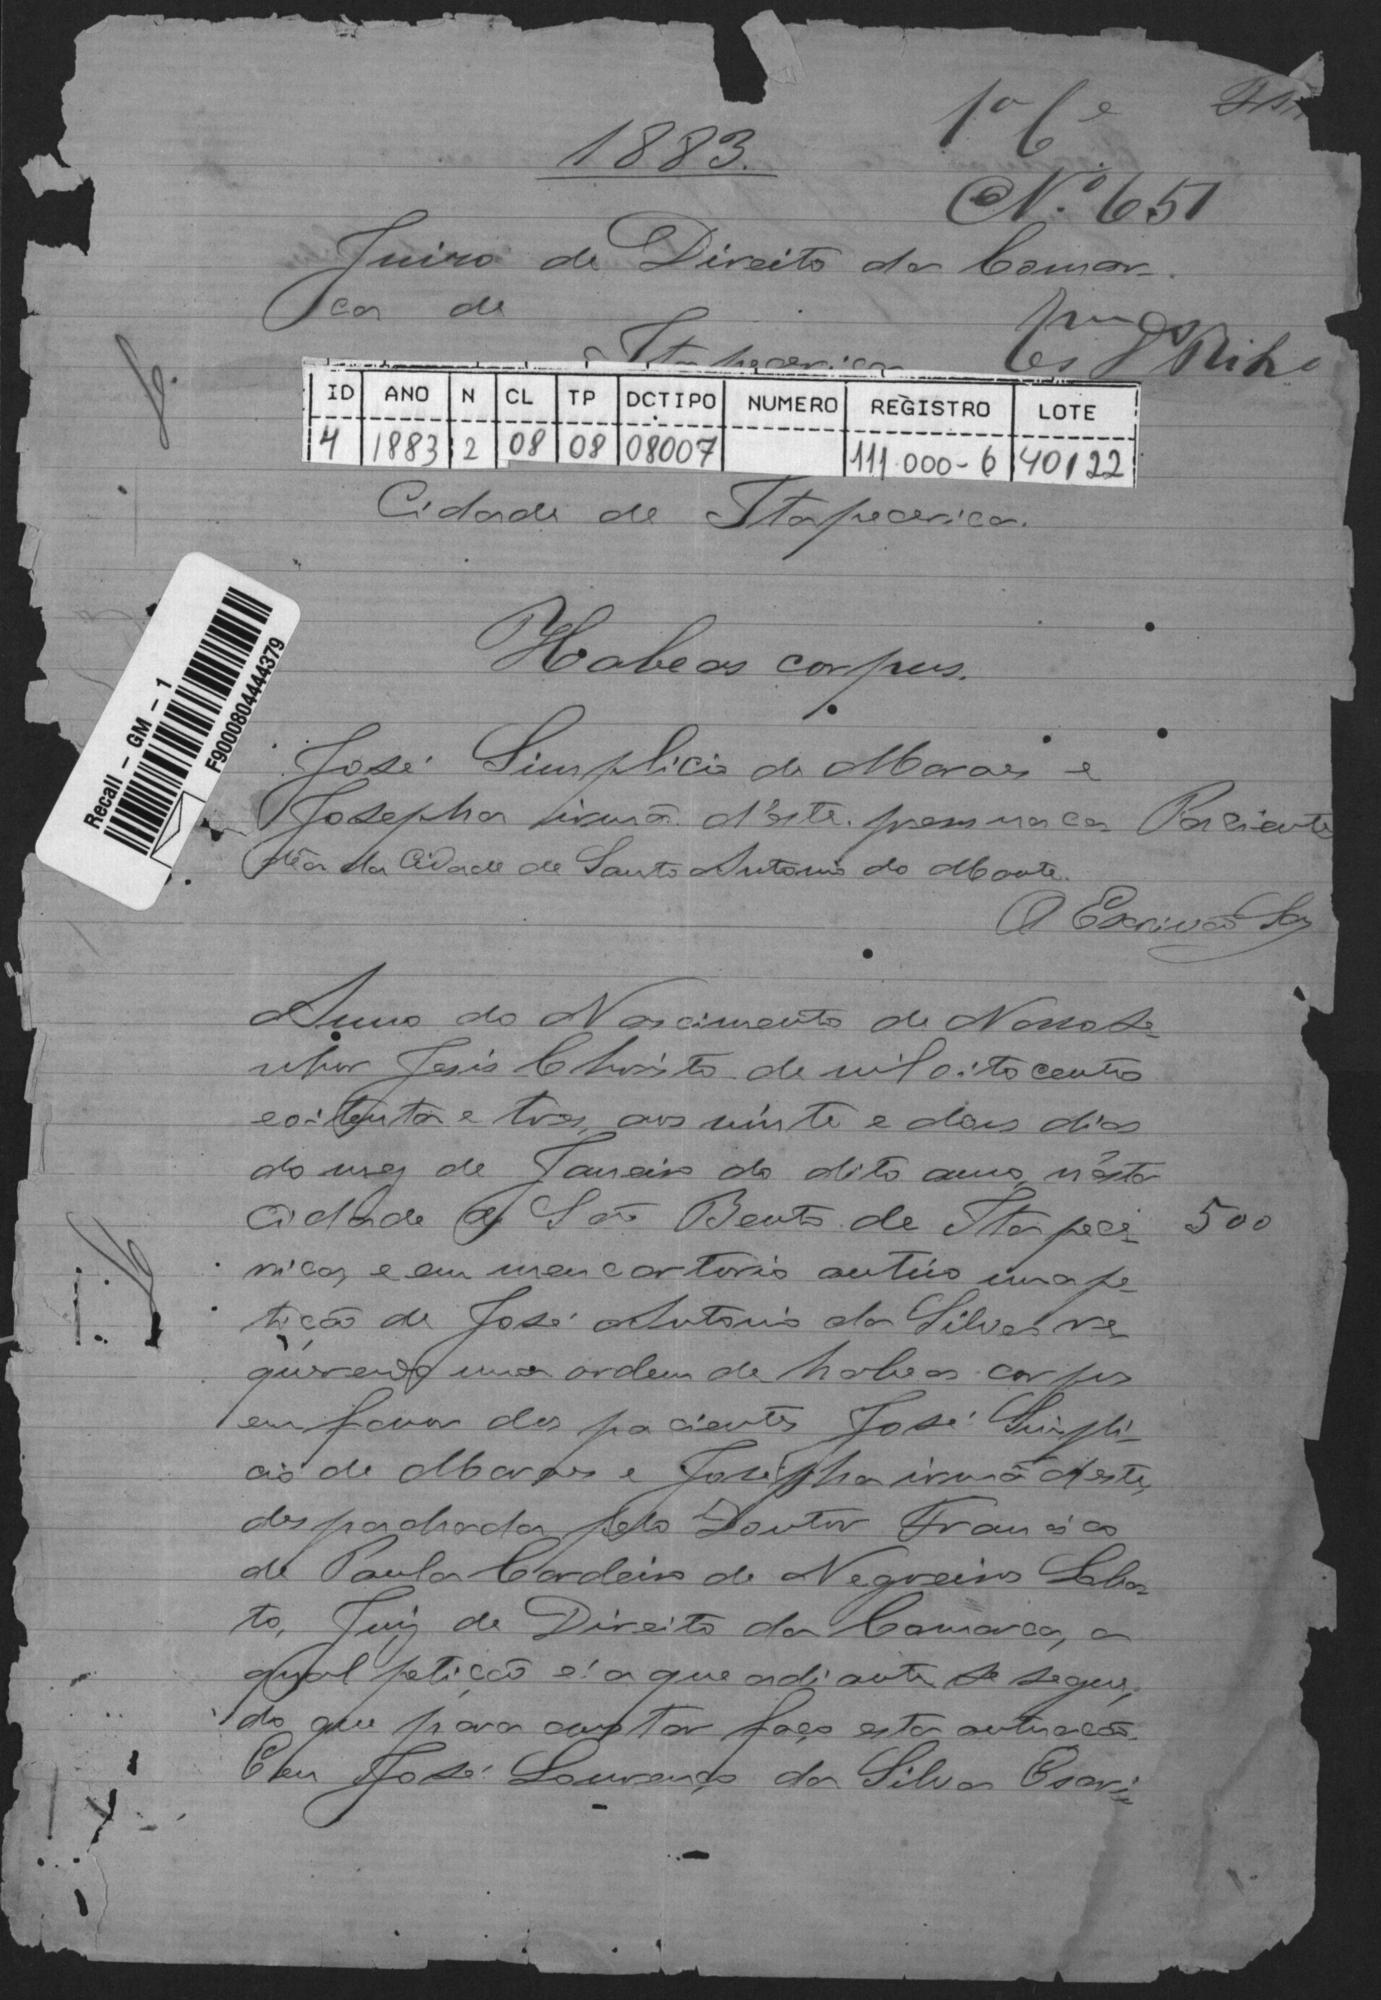 1º Cº
1883.
Nº 651
Juizo de Direito da Comar-
ca de
Itapecerica
ID ANO N CL TP DCTIPO NUMERO REGISTRO LOTE
4 1883 2 08 08 08007 111.000-6 40122
Cidade de Itapecerica.
Recall - GM - 1
F9000804444379
Habeas corpus.
José Simplicio de Moraes e
Josepha irmã d'éste, Paciente
da Cidade de Santo Antonio do Monte.
O Escrivão
Anno do Nascimento de Nosso Se-
nhor Jesis Christo de mil oito centos
e oitenta e tres, aos vinte e dous dias
do mez de Janeiro do dito anno, n'ésta
Cidade de São Bento de Itapece-
rica, e em meu cartorio autúo uma pe-
tição de José Antonio da Silva re-
querendo uma ordem de habeas corpus
em favor dos pacientes José Simpli-
cio de Moraes e Josepha irmã d'este,
despachada pelo Doutor Francisco
de Paula Cordeiro de Negreiros Loba-
to, Juiz de Direito da Comarca, a
qual petição é a que adiante se segue;
do que para constar faço esta autuação.
Eu José Lourenço da Silva Escri-
500